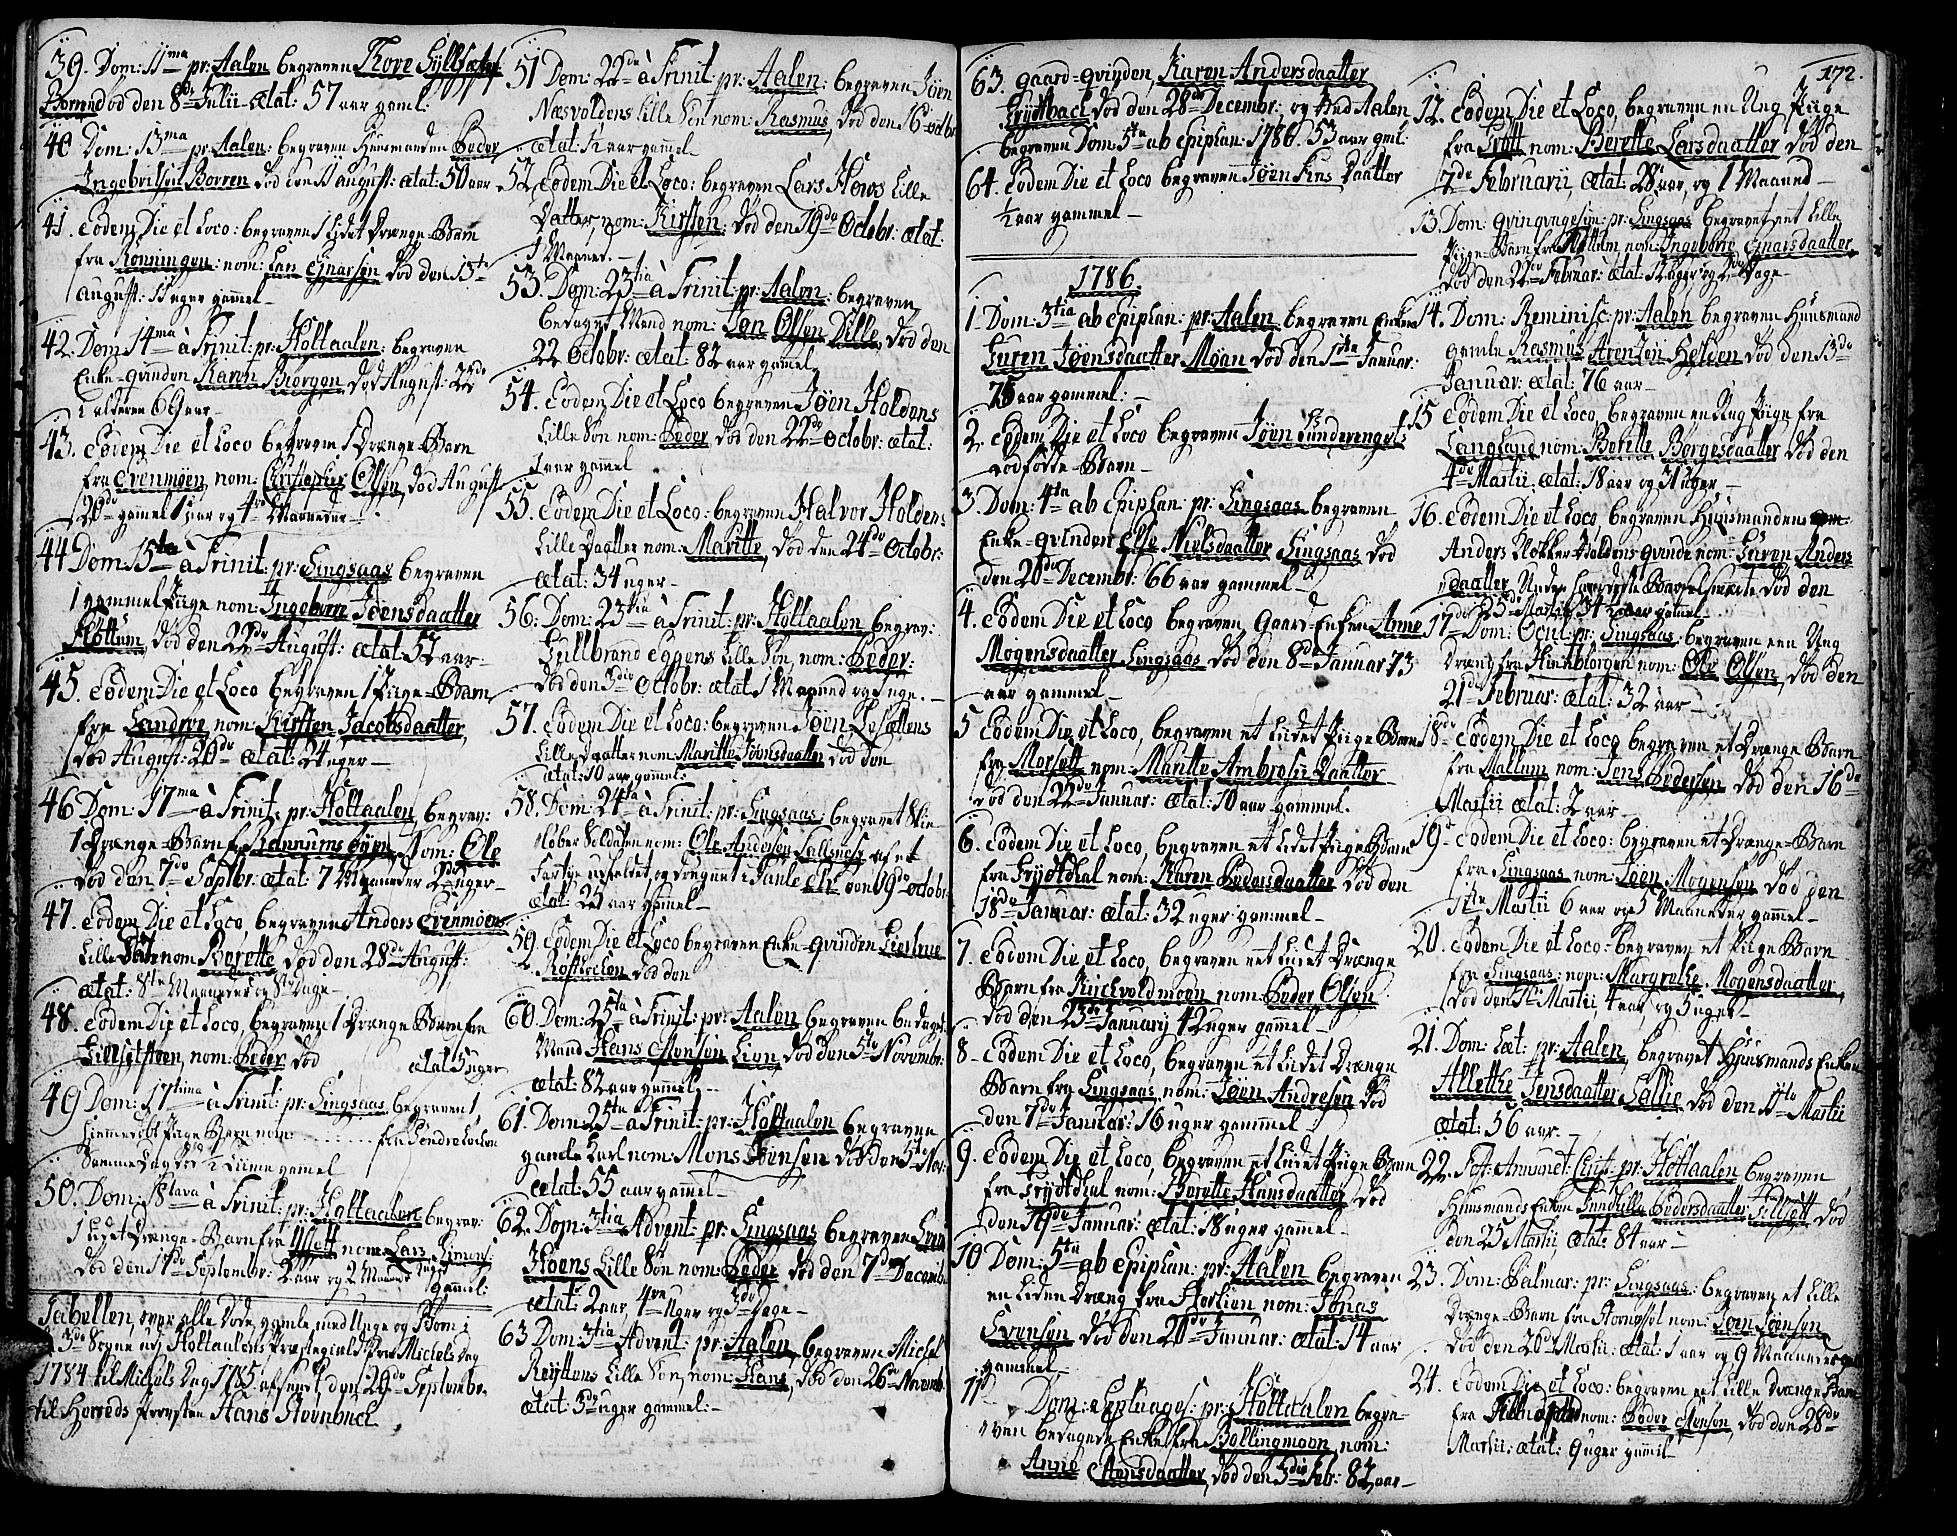 39. Dom: 11ma pr: Aalen begraven Thore Hyllsæter
Borren død den 8de Julii ætat: 57 aar gaml:
40 Dom: 13ma pr: Aalen: begraven Huusmanden Peder
Ingebritsøn Borren død den 11 august: ætat: 50 aar
41. Eodem Die et Loco: begraven 1 Lidet Drænge-Barn
fra Rønningen: nom: Jan Ejnarsøn død den 15te
august: 11 uger gammel
42. Dom 14ma à Trinit: pr: Holtaalen: begraven
Enke-qvinden Karen Biørgen død August: 22de
i alderen 69 aar
43. Eodem Die et Loco begraven 1 Drænge-Barn
fra Evenmoen, nom: Christopher Olsen, død August
26de gammel 1 aar og 4re Maaneder
44 Dom: 15ta à Trinit: pr: Singsaas begraven
1 gammel Piige nom: Ingeborn Joensdaatter
Kottum, død den 22de August: ætat: 57 aar
45. Eodem Die et Loco begraven 1 Piige-Barn
fra Landrøe nom: Kirsten Jacobsdaatter,
død August: 20de ætat: 24 uger
46 Dom: 17ma à Trinit: pr: Holtaalen, begrav:
1 Drænge-Barn fra nom: Ole
død den 7de Septbr: ætat: 7 Maaneder 2 uger
47. Eodem Die et Loco, begraven Anders Evenmoens
Lille nom Berette, død den 28de August:
ætat: 8te Maaneder og 8te Dage
48. Eodem Die et Loco, begraven 1 Drænge Barn fra
nom: Peder død ætat 5 uger
49 Dom: 17tima à Trinit: pr: Singsaas begravent,
hiemmedøbt Pige Barn nom: . . . . . . fra
Samme Dag død 2 Tiime gamel
50. Dom: 18tava à Trinit: pr: Holtaalen begrav:
1 Lidet Drænge-Barn fra nom: Lars
død den 17de Septembr: 2 aar og 2 Maaneder
gammel:
Tabellen, over alle Døde, gamle med Unge og Børn i
de 3de Sogne udj Holtaalens Præstegield fra Michels Dag
1784 til Michels Dag 1785 afsendt, den 29de Septembr.
til Herreds Provsten Hans Steenbuch
51 Dom: 22de à Trinit: pr: Aalen: begraven Joen
Næsvoldens Lille Søn nom: Rasmus, død den 16de octbr
ætat: 12 aar gammel
52. Eodem Die et Loco: begraven Lars Hows Lille
Datter, nom: Kirsten: død den 19de Octobr: ætat:
1 Maaned.
53. Dom: 23tia à Trinit: pr: Aalen: begraven
bedaget Mand nom: Jan Olsen Dille, død den
22 Octobr: ætat: 82 aar gammel,
54. Eodem Die et Loco begraven Joen Holdens
Lille Søn nom: Peder død den 22de Octobr: ætat:
1 aar gammel
55. Eodem Die et Loco: begraven Halvor Holdens
Lille Daatter nom: Maritte, død den 24de Octobr:
ætat: 34 uger
56. Dom: 23tia à Trinit: pr: Holtaalen, begrav:
Gullbrand Eggens Lille Søn, nom: Peder:
død den 3die Octobr: ætat 1 Maaned
57. Eodem Die et Loco: begraven Joen
Lille Daatter nom: Maritte Joensdaatter død den
ætat: 10 aar gammel:
58. Dom: 24ta à Trinit: pr: Singsaas: begravet Skie-
Løber Soldaten nom: Ole Andersen af et
Fartøy udfaldet, og drugnet i Gaule Elv den 19de octobr
ætat: 25 aar gammel
59. Eodem Die et Loco begraven Enke-qvinden
død den
60. Dom: 25ta à Trinit: pr: Aalen begraven bedaget
Mand Hans Stensøn Lien, død den 5te Novembr:
ætat: 82 aar gamel,
61. Dom: 25ta à Trinit: pr: Holtaalen begraven
gamle Karl nom: Mons Joensen død den 5te Nov:
ætat: 55 aar gammel
62. Dom: 3tia Advent: pr: Singsaas begraven
Hoens Lille Søn nom: Peder død den 7de Decemb:
ætat: 2 aar, 4re uger og 3de Dage
63 Dom: 3tia Advent: pr: Aalen, begraven Michel
Reyttons Lille Søn, nom: Hans, død den 26de Novemb.
ætat: 3de uger gammel:
172.
63. gaard-qvinden, Karen Andersdaatter
død den 28de Decembr: og Ved Aalen
begraven Dom: 5ta ab Epiphan: 1786. 53 aar gml:
64. Eodem Die et Loco begraven Joen Daatter
1/2 aar gammel
1786.
1. Dom: 3tia ab Epiphan: pr: Aalen begraven Enken
Guren Joensdaatter Moan død den 1ste Januar:
75 aar gammel:
2. Eodem Die et Loco begraven Joen
dødfødte Barn
3. Dom: 4ta ab Epiphan: pr: Singsaas begraven
Enke-qvinden Else Nielsdaatter Singsaas død
den 20de Decembr: 66 aar gammel
4. Eodem Die et Loco begraven Gaard-Enken Anne
Mogensdaatter Singsaas død den 8de Januar 73
aar gammel
5 Eodem Die et Loco, begraven et Lidet Piige Barn
fra Morsett nom: Maritte Ambrosii Daatter
død den 22de Januar: ætat: 10 aar gammel.
6. Eodem Die et Loco, begraven et Lidet Piige Barn
fra Frydthal nom: Karen Pedersdaatter død den
18de Januar: ætat: 32 uger gammel
7. Eodem Die et Loco, begraven et Lidet Drænge
Barn fra Kirchvoldmoen nom: Peder Olsen
død den 23de Januarij 42 uger gamel
8. Eodem Die et Loco, begraven et Lidet Drænge
Barn fra Singsaas, nom: Joen Andresen død
den 7de Januar: 16 uger gammel
9. Eodem Die et Loco, begraven et Lidet Piige Barn
fra Frydthal nom: Berette Hansdaatter, død
den 19de Januar: ætat: 18 uger gammel
10 Dom: 5ta ab Epiphan: pr: Aalen begraven
en Liden Dræng fra Storlien nom: Jonas
Evensøn død den 20de Januar: ætat: 14 aar
gammel
11. Dom: Septuages: pr: Holtaalen begra-
ven bedagede Enke fra Bollingmoen, nom:
Anne Stensdaatter, død den 3die Febr: 82 aar
12. Eodem Die et Loco, begraven en Ung Piige
fra nom: Berette Larsdaatter død den
7de Februarii ætat: 28 aar, og 1 Maaned
13. Dom: qvinqvagesim: pr: Singsaas begravet et Lille
Piige-Barn fra Kottum nom: Ingeborre Ejnarsdaatter,
død den 22de Februar: ætat: 12 uger og 2de Dage
14. Dom: Reminisc: pr: Aalen begraven Huusmand
gamle Rasmus Arentzøn død den 13de
Januar: ætat: 76 aar
15 Eodem Die et Loco, begraven en Ung Piige fra
Langland nom: Berette Børgesdaatter død den
4de Martii, ætat: 18 aar og 31 uger
16. Eodem Die et Loco, begraven Huusmandens
Anders Klokker Holdens qvinde nom: Guren Anders
daatter, død den
23de Martii 34 aar gamel
17. Dom: Oculi: pr: Singsaas begraven een Ung
Dræng fra Hinkborgen nom: Ole Olsen, død den
21de Februar: ætat: 32 aar
18. Eodem Die et Loco begraven et Drænge-Barn
fra Mallum nom: Jens Pedersen død den 16de
Martii ætat: 2 aar
19. Eodem Die et Loco: begraven et Drænge-Barn
fra Singsaas nom: Joen Mogensen død den
17de Martii 6 aar og 5 Maaneder gammel
20. Eodem Die et Loco: begraven et Piige Barn
fra Singsaas: nom: Margrethe Mogensdaatter,
død den Martii 4 aar, og 5 uger
21. Dom: Læt: pr: Aalen, begravet Huusmands Enken
Allethe Jensdaatter Sallie, død den 11te Martii
ætat: 56 aar.
22. Fest: Annunt: Christ: pr: Holtaalen begraven
Huusmands Enken Gunhilda Pedersdaatter død
den 25 Martii, ætat: 84 aar
23. Dom: Palmar: pr: Singsaas: begraven et Lille
Drænge-Barn fra nom: Joen Joensøn
død den 20de Martii: ætat: 1 aar og 9 Maaneder
24. Eodem Die et Loco: begraven et Lille Drænge Barn
fra nom: Peder Stensøn, død den 28de
Martii: ætat: 9 uger gamel